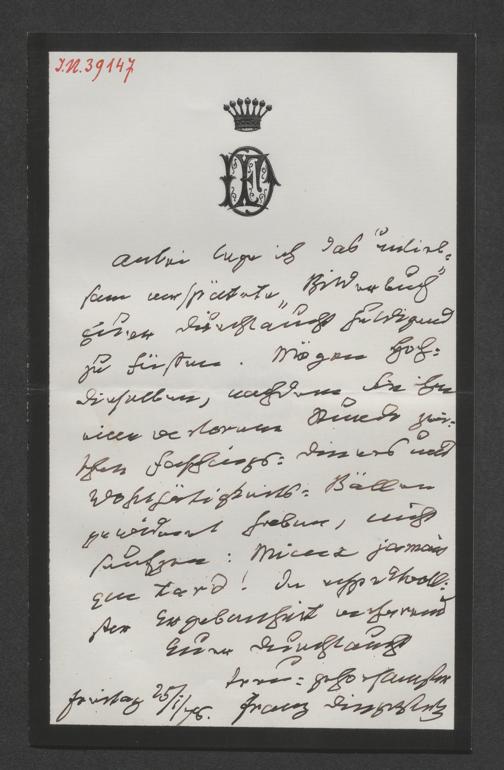 I.N. 39147
anbei lege ich das unlieb-
sam verspätete „Bilderbuch"
Euer Durchlaucht huldigend
zu Füßen. Mögen Hoch-
dieselben, nachdem Sie ihm
eine verlorene Stunde zwi-
schen Faschings- Diners und
Wohlthätigkeits- Bällen
gewidmet haben, nicht
seufzen: Mieux jamais
que tard! In ehrfurchtvoll-
ster Ergebenheit verharrend
Euer Durchlaucht
treu- gehorsamster
Freitag 25/1/78. Franz Dingelstedt